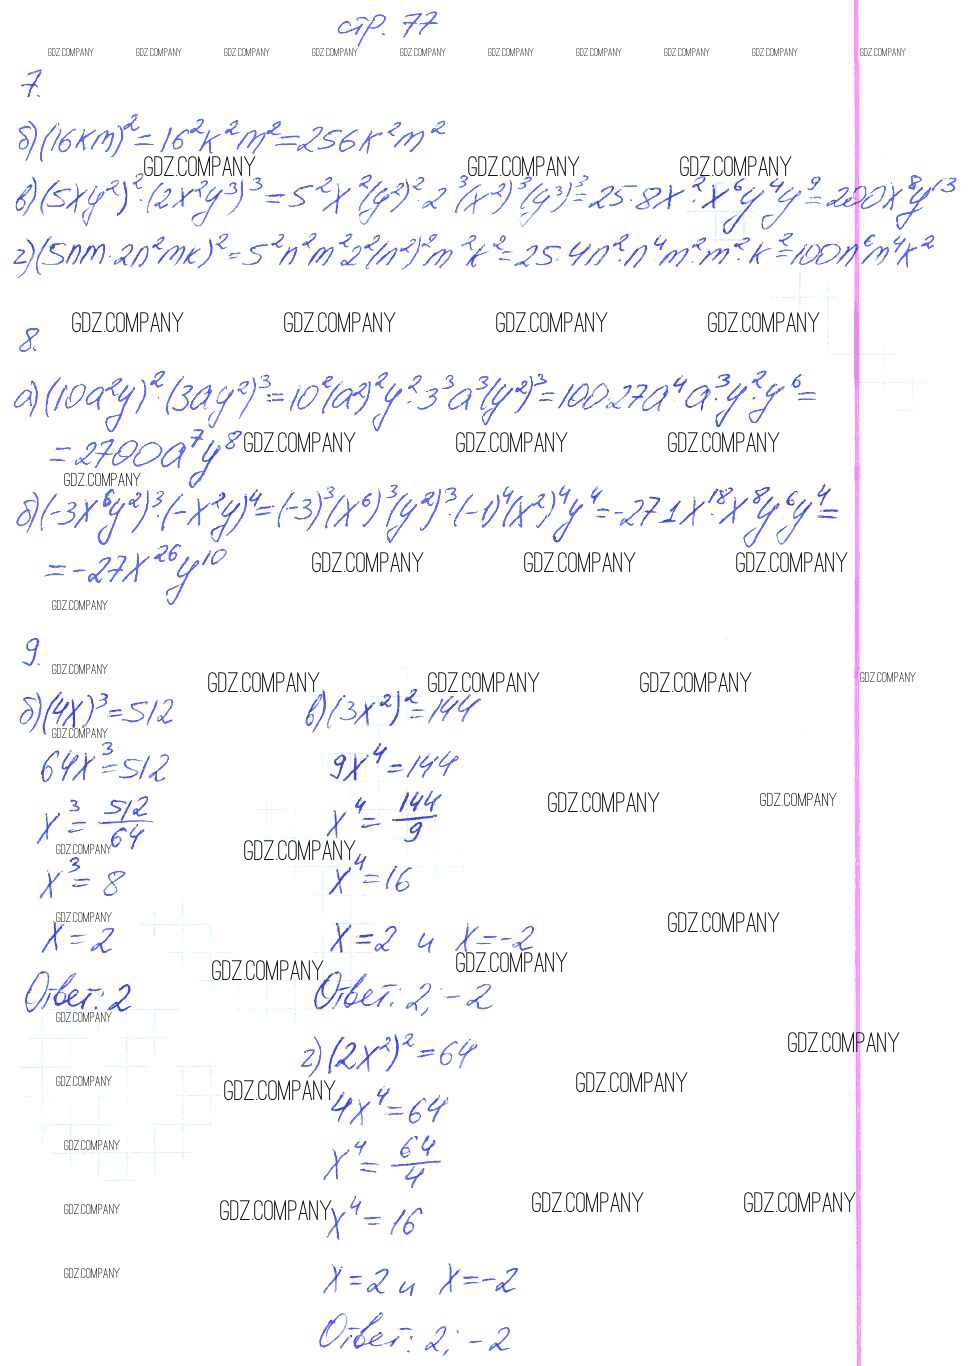 стр. 77
GDZ.COMPANY GDZ.COMPANY GDZ.COMPANY GDZ.COMPANY GDZ.COMPANY GDZ.COMPANY GDZ.COMPANY GDZ.COMPANY GDZ.COMPANY GDZ.COMPANY
7.
б) (16км)² = 16²к²м² = 256к²м²
GDZ.COMPANY GDZ.COMPANY GDZ.COMPANY
в) (5xy²)²·(2x²y³)³ = 5²x²(y²)²·2³(x²)³(y³)³ = 25·8x²·x⁶y⁴y⁹ = 200x⁸y¹³
г) (5nm·2n²mk)² = 5²n²m²2²(n²)²m²k² = 25·4n²·n⁴m²·m²·k² = 100n⁶m⁴k²
GDZ.COMPANY GDZ.COMPANY GDZ.COMPANY GDZ.COMPANY
8.
а) (10a²y)²·(3ay²)³ = 10²(a²)²y²·3³a³(y²)³ = 100·27a⁴a³y²y⁶ =
= 2700a⁷y⁸
GDZ.COMPANY GDZ.COMPANY GDZ.COMPANY
GDZ.COMPANY
б) (-3x⁶y²)³·(-x²y)⁴ = (-3)³(x⁶)³(y²)³·(-1)⁴(x²)⁴y⁴ = -27·1x¹⁸·x⁸y⁶y⁴ =
= -27x²⁶y¹⁰
GDZ.COMPANY GDZ.COMPANY GDZ.COMPANY
GDZ.COMPANY
9.
GDZ.COMPANY GDZ.COMPANY GDZ.COMPANY GDZ.COMPANY GDZ.COMPANY
б) (4x)³ = 512
GDZ.COMPANY
64x³ = 512
x³ = 512/64
GDZ.COMPANY
x³ = 8
GDZ.COMPANY
x = 2
Ответ: 2
GDZ.COMPANY
в) (3x²)² = 144
9x⁴ = 144
x⁴ = 144/9
GDZ.COMPANY GDZ.COMPANY
GDZ.COMPANY
x⁴ = 16
GDZ.COMPANY
x = 2 и x = -2
GDZ.COMPANY GDZ.COMPANY
Ответ: 2; -2
г) (2x²)² = 64
GDZ.COMPANY
GDZ.COMPANY GDZ.COMPANY GDZ.COMPANY
4x⁴ = 64
x⁴ = 64/4
GDZ.COMPANY
GDZ.COMPANY GDZ.COMPANY GDZ.COMPANY GDZ.COMPANY
x⁴ = 16
GDZ.COMPANY
x = 2 и x = -2
Ответ: 2; -2